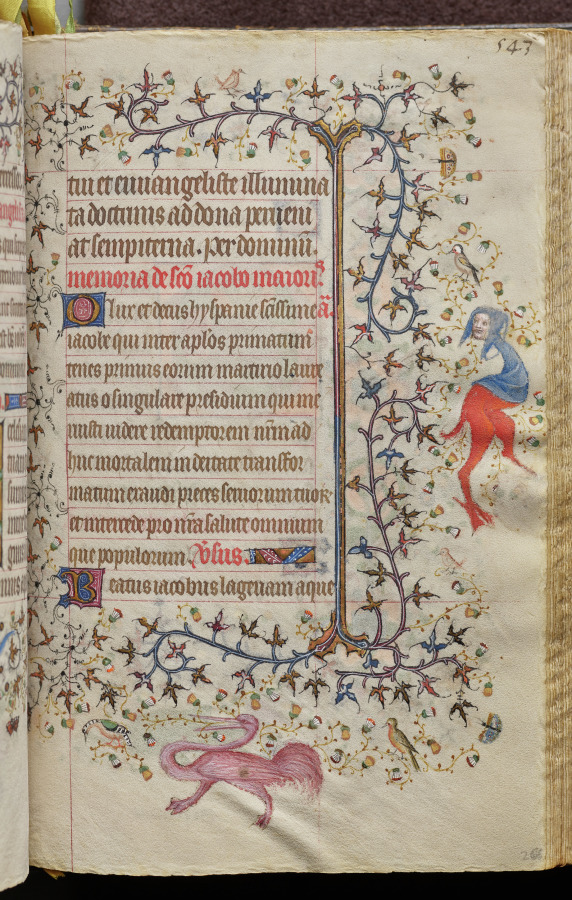 543
tui et euuangeliste illumina
ta doctrinis ad dona perueni
at sempiterna. Per dominū.
memoria de scō iacobo maiori
O lux et decus hyspanie scissime ā.
iacobe qui inter aplōs primatum
tenes primus eorum martirio laure
atus o singulare presidium qui me
ruisti uidere redemptorem nrm̄ ad
huc mortalem in deitate transfor
matum exaudi preces seruorum tuor
et intercede pro nrā salute omnium
que populorum. Vsus.
Beatus iacobus lageuam aque